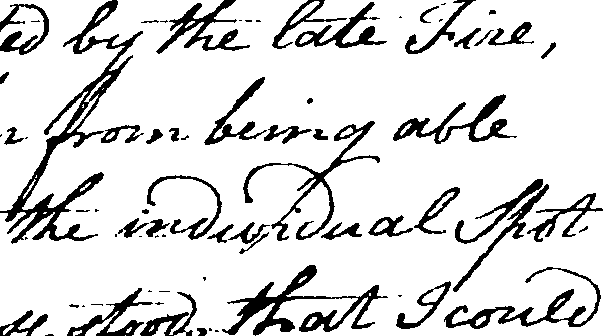 by the late Fire,
from being able
the individual Spot
stood, that I could